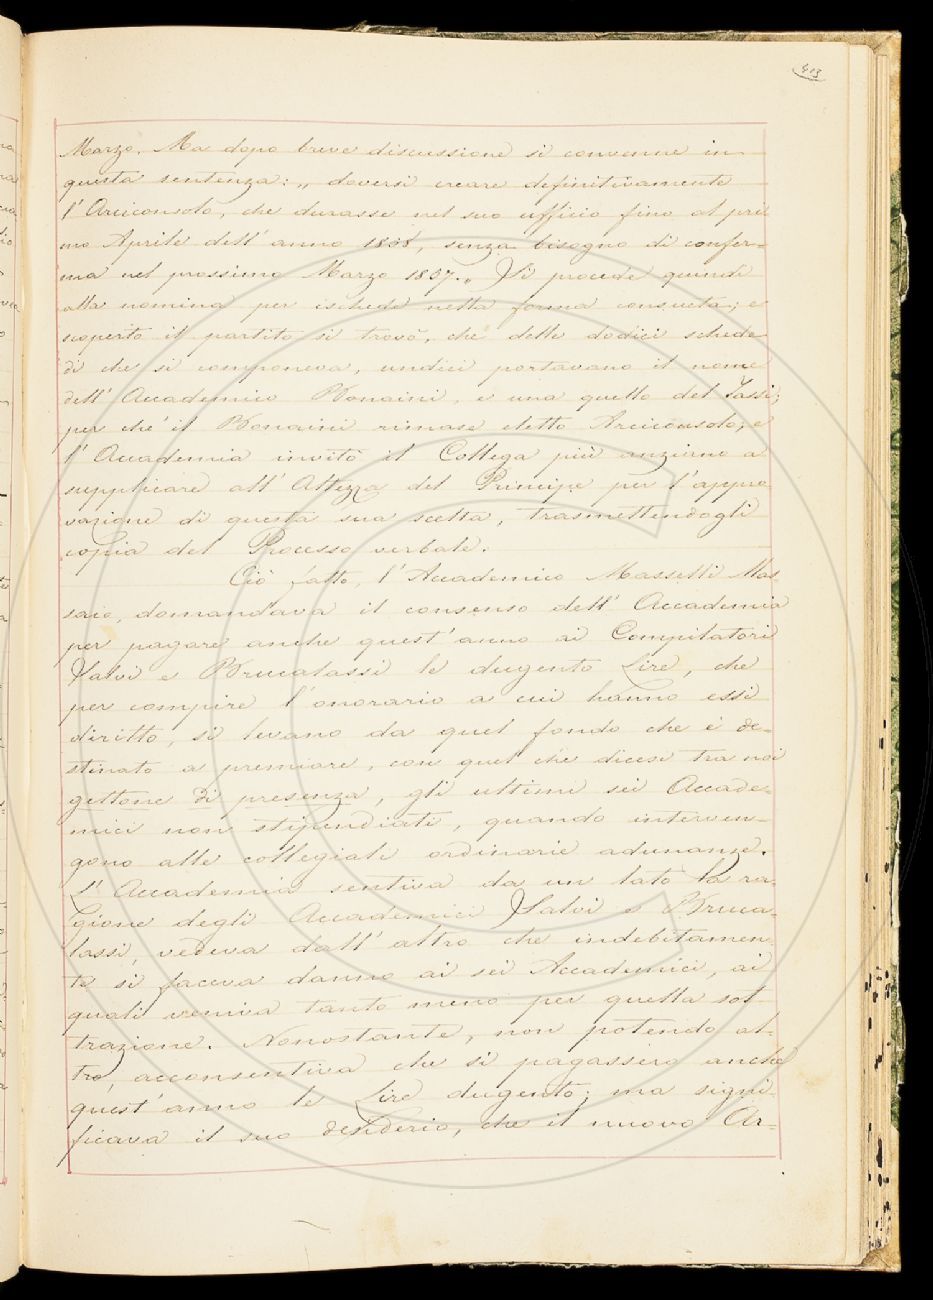 413
Marzo. Ma dopo breve discussione si convenne in
questa sentenza: „ doversi creare definitivamente
l'Arciconsolo, che durasse nel suo ufficio fino al pri-
mo Aprile dell'anno 1858, senza bisogno di confer-
ma nel prossimo Marzo 1857. „ Si procede quindi
alla nomina per ischede nella forma consueta; e
scoperto il partito si trovò, che delle dodici schede
di che si componeva, undici portavano il nome
dell'Accademico Bonaini, e una quello del Tassi;
per che il Bonaini rimase eletto Arciconsolo; e
l'Accademia invitò il Collega più anziano a
supplicare all'Altezza del Principe per l'appro-
vazione di questa sua scelta, trasmettendogli
copia del Processo verbale.
Ciò fatto, l'Accademico Masselli Mas-
saio, domandava il consenso dell'Accademia
per pagare anche quest'anno ai Compilatori
Salvi e Brucalassi le dugento Lire, che
per compire l'onorario a cui hanno essi
diritto, si levano da quel fondo che è de-
stinato a premiare, con quel che dicesi tra noi
gettone di presenza, gli ultimi sei Accade-
mici non stipendiati, quando interven-
gono alle collegiali ordinarie adunanze.
L'Accademia sentiva da un lato la ra-
gione degli Accademici Salvi e Bruca-
lassi, vedeva dall'altro che indebitamen-
te si faceva danno ai sei Accademici, ai
quali veniva tanto meno per quella sot-
trazione. Nonostante, non potendo al-
tro, acconsentiva che si pagassero anche
quest'anno le Lire dugento; ma signi-
ficava il suo desiderio, che il nuovo Ar-